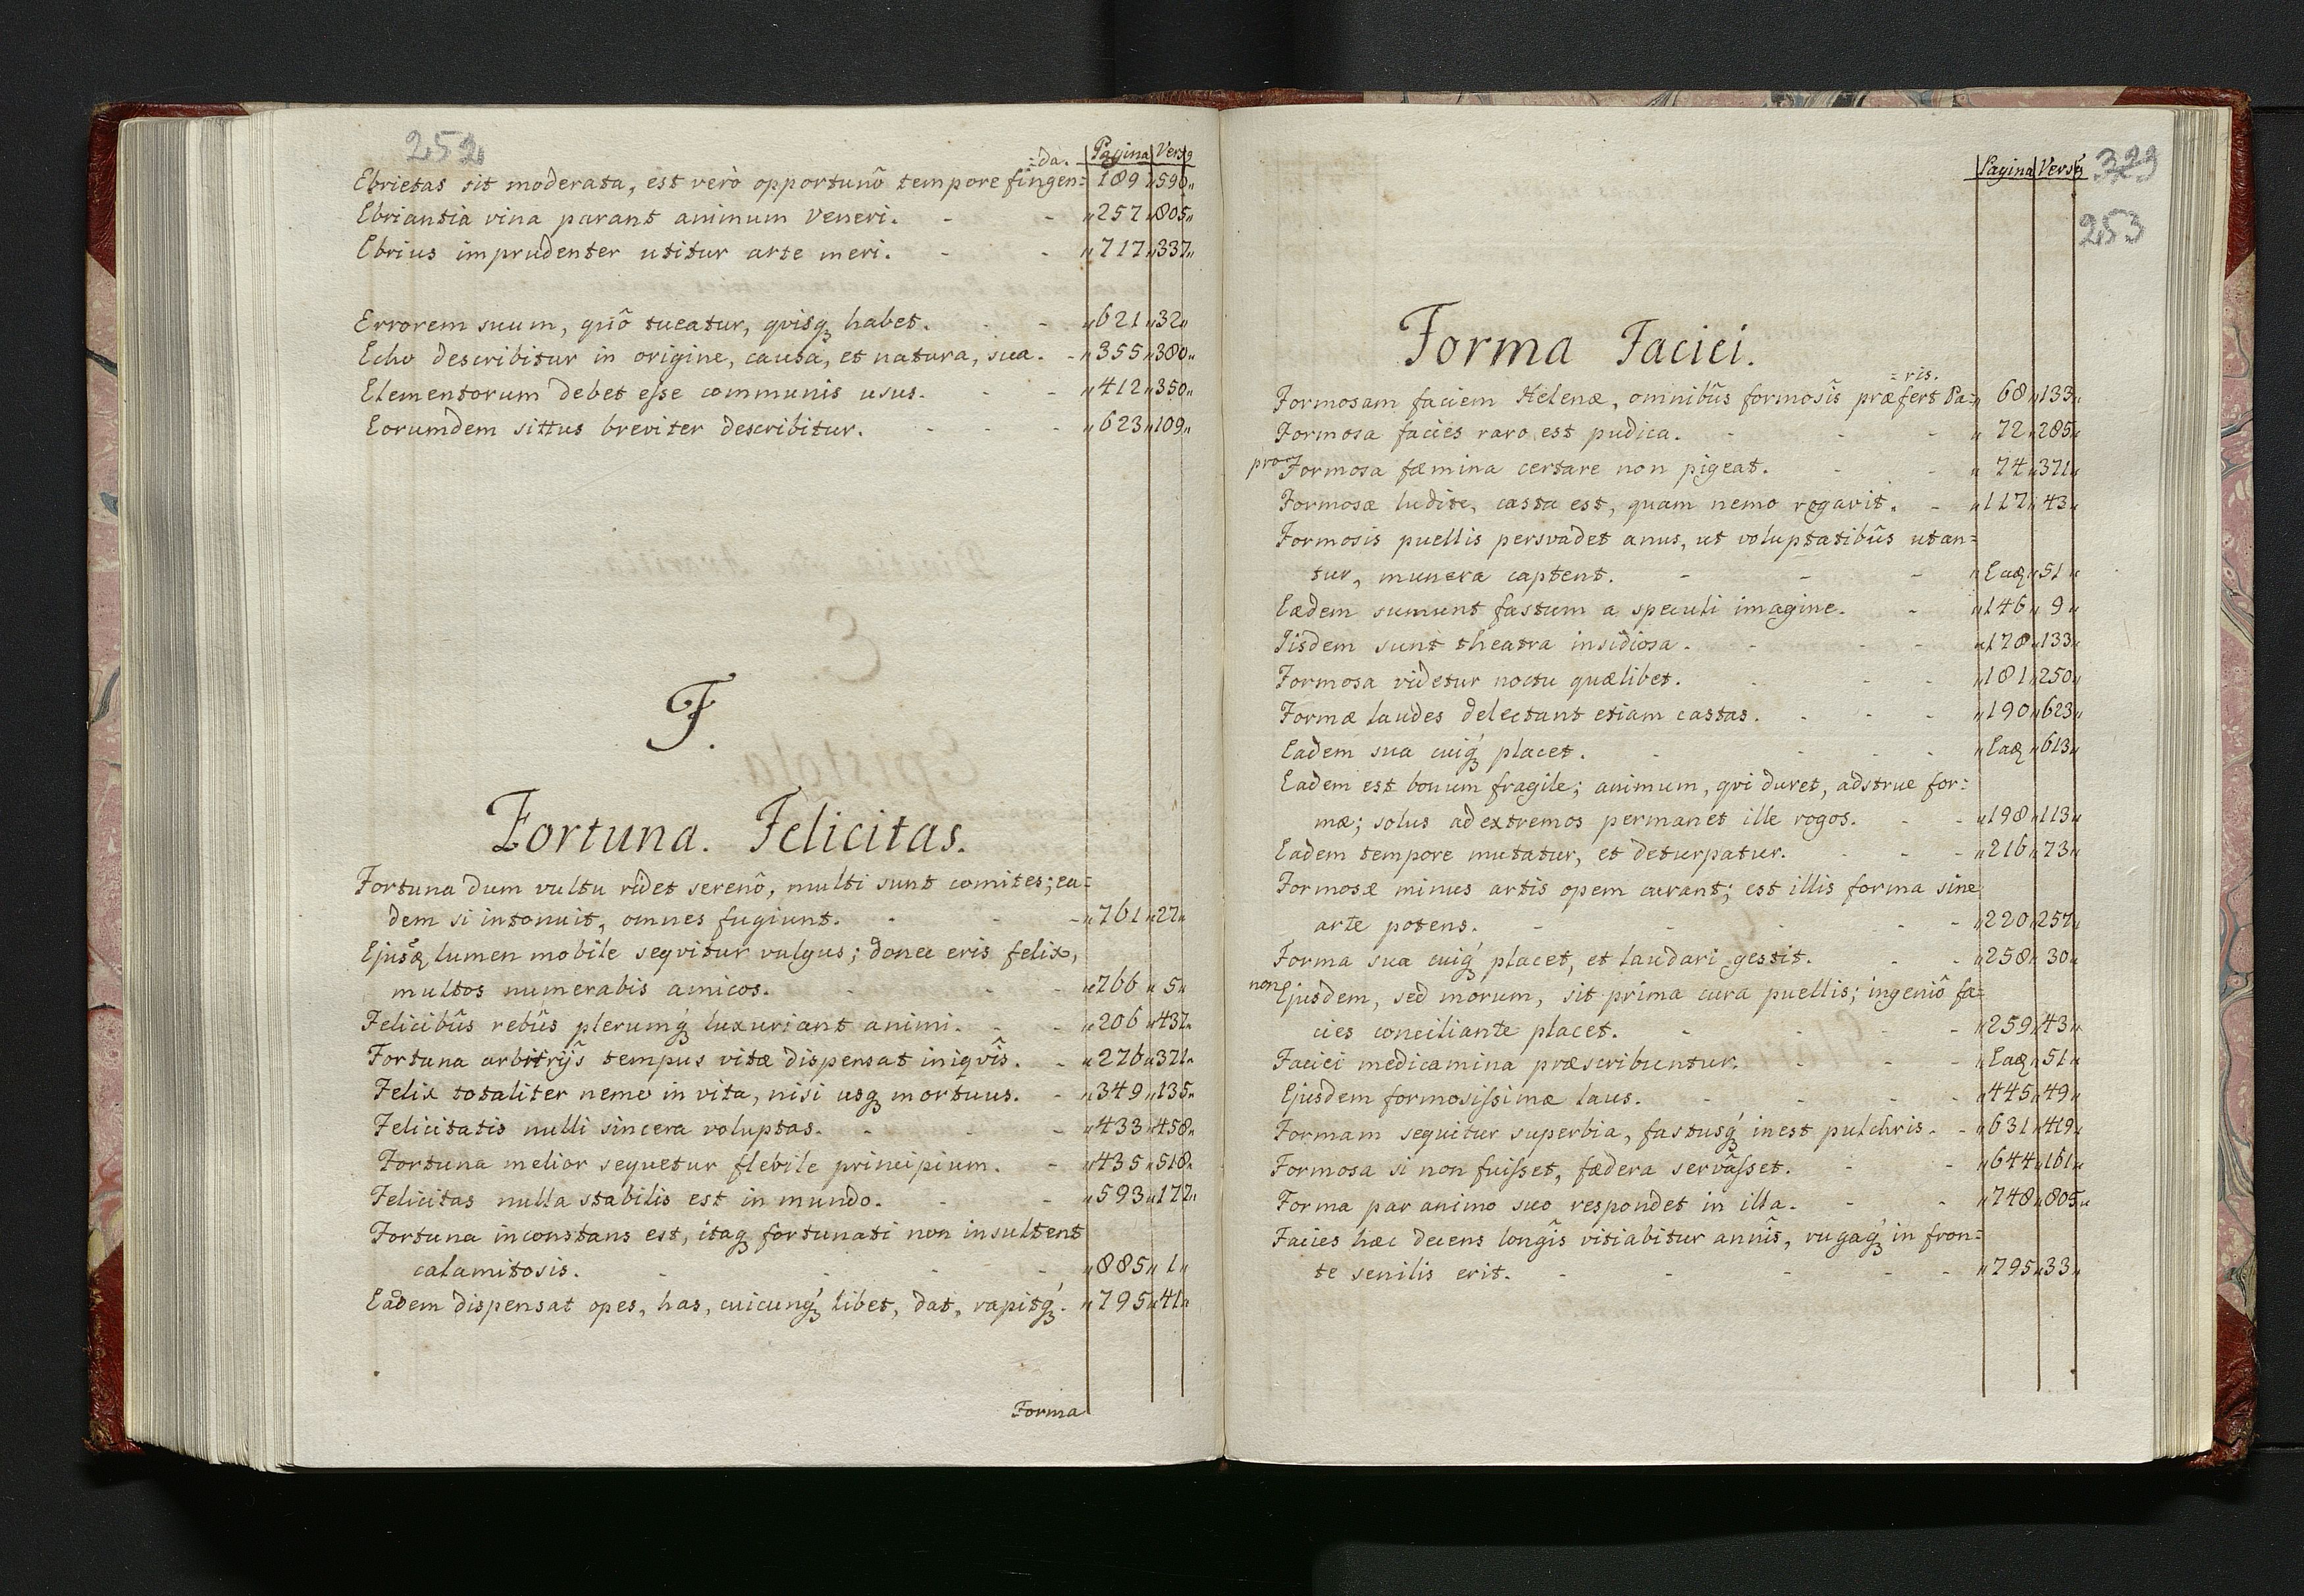 252
=da. Pagina Versꝯ
Ebrietas sit moderata, est verò opportunô tempore fingen= 189 „590„
Ebriantia vina parant animum Veneri. - - „257„805„
Ebrius imprudenter utitur arte meri. - - „717„337„
Errorem suum, quô tueatur, qvisqꝫ habet. - - „621„32„
Echo describitur in origine, causa, et natura, sua. - „355„380„
Elementorum debet eſse communis usus. - - „412„350„
Eorumdem sittus breviter describitur. - - - „623„109„
F.
Fortuna. Felicitas.
Fortuna dum vultu ridet serenô, multi sunt comites; ea=
dem si intonuit, omnes fugiunt. - - - „761„27„
Ejusqꝫ lumen mobile seqvitur vulgus; donec eris felix,
multos numerabis amicos. - - - „766„5„
Felicibûs rebûs plerumqꝫ́ luxuriant animi. - - „206„437„
Fortuna arbitrijs̃ tempus vitæ dispensat iniqvis̃. - „276„371„
Felix totaliter nemo in vita, nisi usqꝫ mortuus. - „349„135„
Felicitatis nulli sincera voluptas. - - - „433„458„
Fortuna melior sequetur flebile principium. - „435„518„
Felicitas nulla stabilis est in mundo. - - „593„177„
Fortuna inconstans est, itaqꝫ fortunati non insultent
calamitosis. - - - - „885„1„
Eadem dispensat opes, has, cuicunqꝫ́ libet, dat, rapitqꝫ́. „795„41„
Forma
Pagina Versꝯ 323
253
Forma Faciei.
=ris.
Formosam faciem Helenæ, omnibûs formosis̃ præfert Pa= „68„133„
Formosa facies raro est pudica. - - - „72„285„
pro Formosa fæmina certare non pigeat. - - „74„371„
Formosæ ludite, casta est, quam nemo rogavit. - „117„43„
Formosis puellis persvadet anus, ut voluptatibûs utan=
tur, munera captent. - - - „Eaqꝫ„51„
Eædem sumunt fastum a speculi imagine. - „146„9„
Iisdem sunt theatra insidiosa. - - - „178„133„
Formosa videtur noctu quælibet. - - - „181„250„
Formæ laudes delectant etiam castas. - - - „190„623„
Eadem sua cuiqꝫ́ placet. - - - - „Eaqꝫ„613„
Eadem est bonum fragile; animum, qvi duret, adstrue for=
mæ; solus ad extremos permanet ille rogos. - - „198„113„
Eadem tempore mutatur, et deturpatur. - - - „216„73„
Formosæ minus artis opem curant; est illis forma sine
arte potens. - - - - - „220„257„
Forma sua cuiqꝫ́ placet, et laudari gestit. - - „258„30„
non Ejusdem, sed morum, sit prima cura puellis; ingeniô fa=
cies conciliante placet. - - - - „259„43„
Faciei medicamina præscribuntur. - - - „Eaqꝫ„51„
Ejusdem formosiſsimæ laus. - - - - „445„49„
Formam sequitur superbia, fastusqꝫ́ inest pulchris. - „631„419„
Formosa si non fuiſset, fædera servâſset. - - „644„161„
Forma par animo suo respondet in illa. - - „748„805„
Facies hæc decens longis̃ vitiabitur annis̃, rugaqꝫ́ in fron=
te senilis erit. - - - - - „795„33„